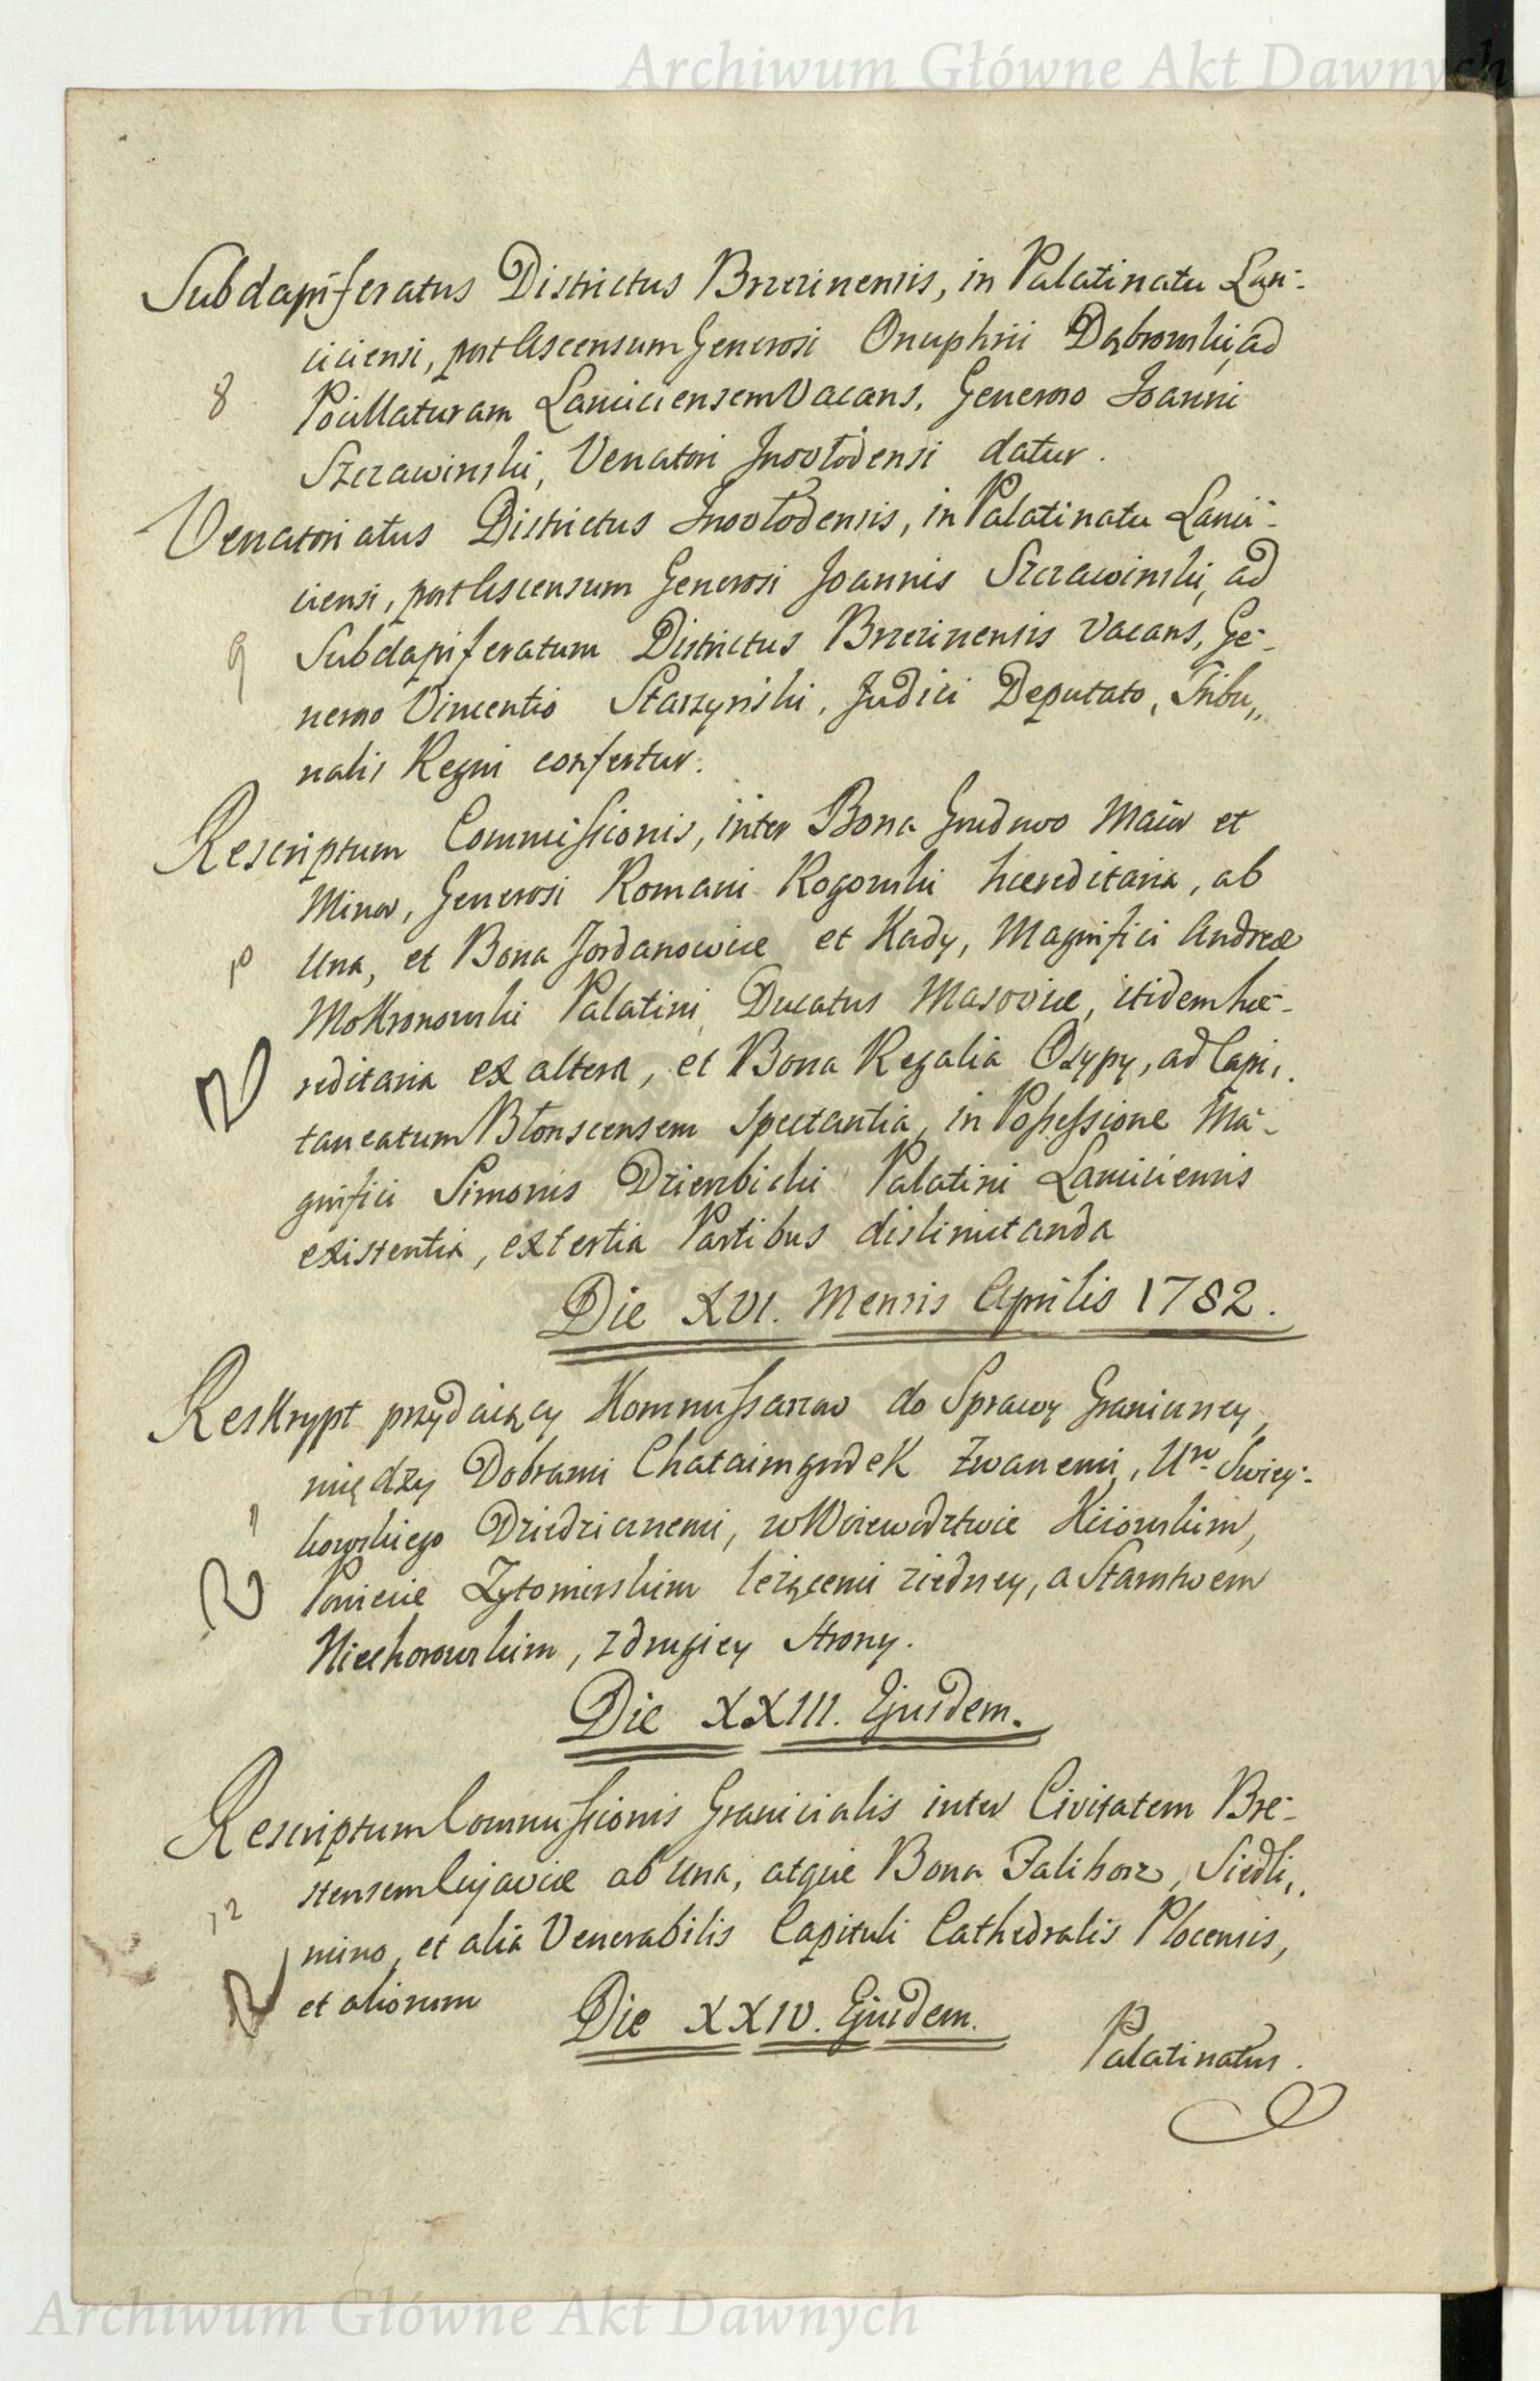 Archiwum Główne Akt Dawnych
Subdapiferatus Districtus Brzezinensis, in Palatinatu Lan-
ciciensi, post Ascensum Generosi Onuphrii Dąbrowski, ad
8 Pocillaturam Lanciciensem Vacans, Generoso Joanni
Szczawinski, Venatori Inovłodensi datur.
Venatoriatus Districtus Inovłodensis, in Palatinatu Lanci-
ciensi, post Ascensum Generosi Joannis Szczawinski, ad
9 Subdapiferatum Districtus Brzezinensis Vacans, Ge-
neroso Vincentio Starzyński, Judici Deputato, Tribu„
nalis Regni confertur.
Rescriptum Commissionis, inter Bona Grudowo Maior et
Minor, Generosi Romani Rogowski hæreditaria, ab
10 Una, et Bona Jordanowice et Kady, Magnifici Andreæ
Mokronowski Palatini Ducatus Masoviæ, itidem hæ-
reditaria ex altera, et Bona Regalia Osypy, ad Capi„
taneatum Błonscensem Spectantia, in Possessione Ma-
gnifici Simonis Dzierzbicki Palatini Lanciciensis
existentia, ex tertia Partibus dislimitanda
Die XVI. Mensis Aprilis 1782.
Reskrypt przydaiący Kommissarzow do Sprawy Graniczney,
między Dobrami Chataimgrudek zwanemi, Uro Swiey-
11 kowskiego Dziedzicznemi, w Woiewodztwie Kiiowskim,
Powiecie Zytomirskim leżącemi z iedney, a Starostwem
Niechorowskim, z drugiey Strony.
Die XXIII. Ejusdem.
Rescriptum Commissionis Granicialis inter Civitatem Bre-
stensem Cujaviæ ab Una, atque Bona Faliborz, Siedli„
12 mino, et alia Venerabilis Capituli Cathedralis Plocensis,
et aliorum
Die XXIV. Ejusdem.
Palatinatus.
Archiwum Główne Akt Dawnych